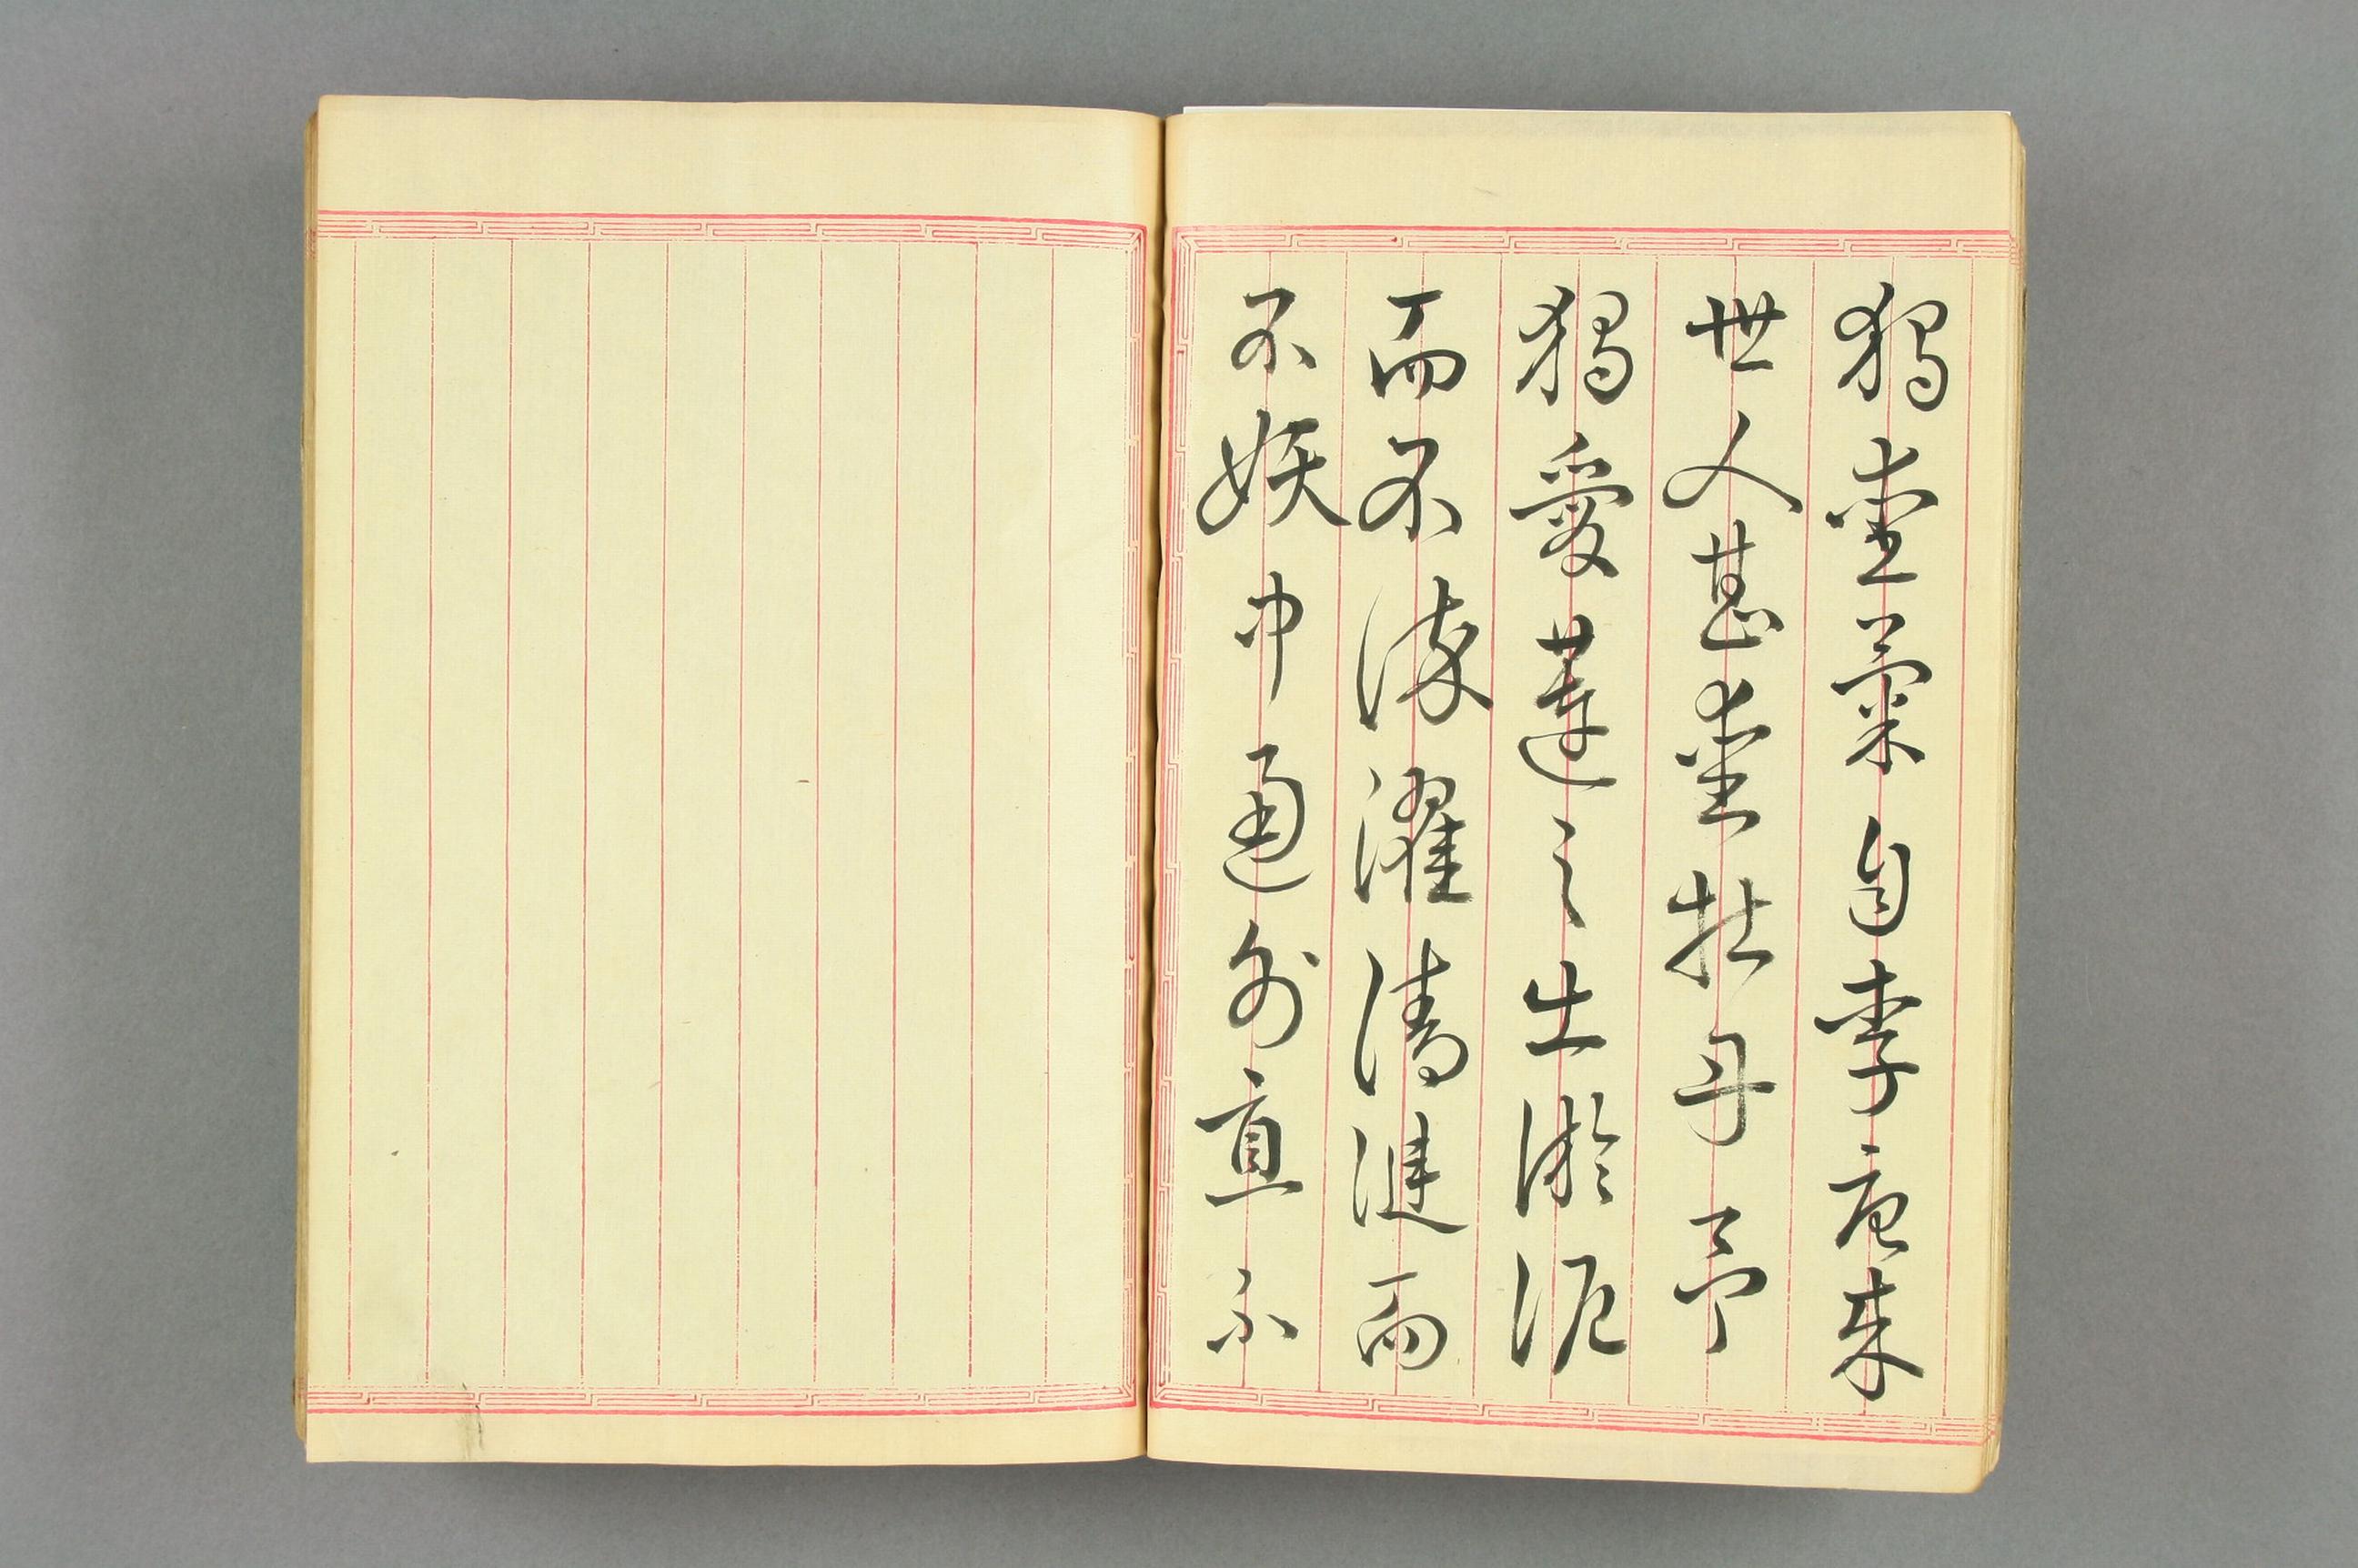 獨愛菊自李唐来
世人甚愛牡丹予
獨愛蓮之出淤泥
而不染濯清漣而
不妖中通外直不